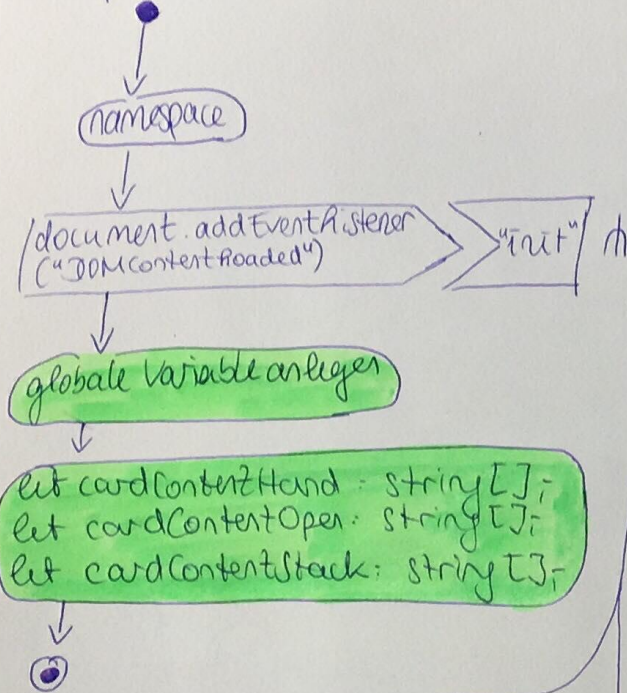 namespace
document.addEventListener
("DOMContentLoaded")
"init"
globale Variable anlegen
let cardContentHand : string [];
let cardContentOpen : string [];
let cardContentStack : string [];